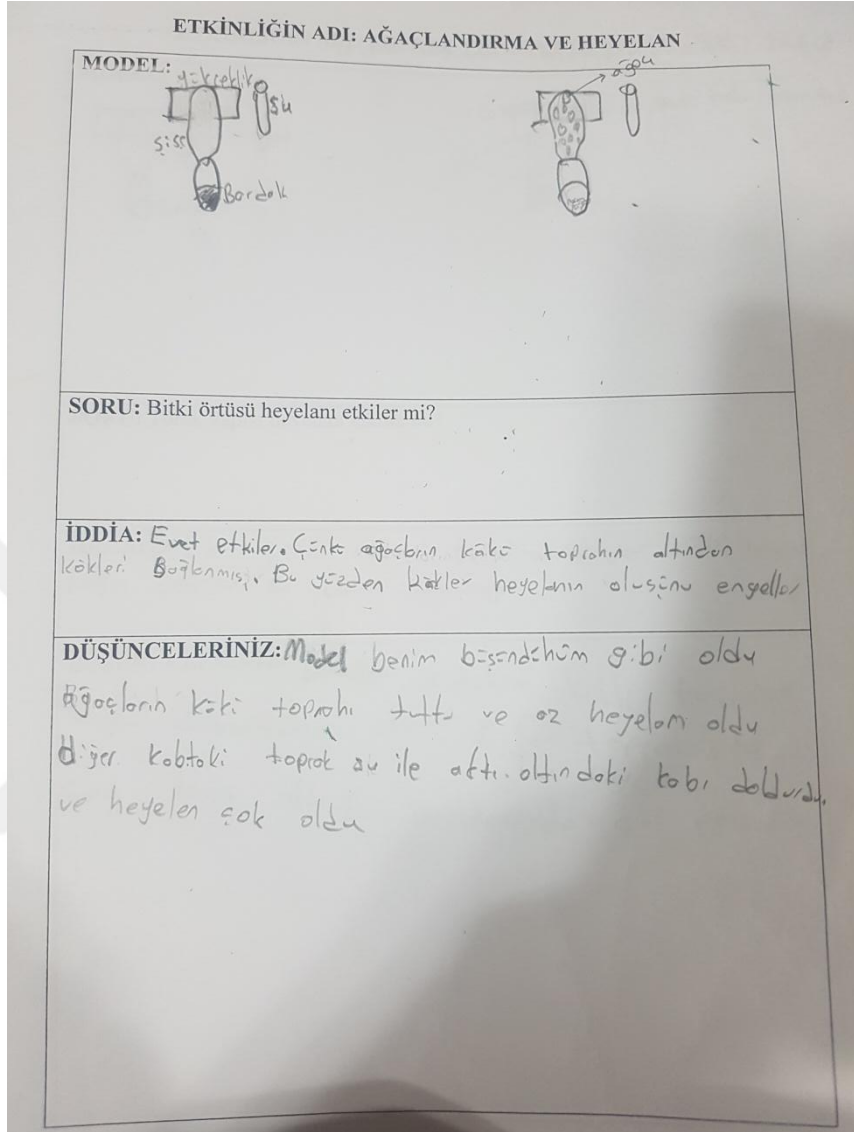 ETKİNLİĞİN ADI: AĞAÇLANDIRMA VE HEYELAN
MODEL:
yükseklik
su
şişe
Bardak
ağaç
SORU: Bitki örtüsü heyelanı etkiler mi?
İDDİA: Evet etkiler. Çünkü ağaçların kökü toprahın altından
kökleri Bağlanmış. Bu yüzden kökler heyelanın oluşunu engeller
DÜŞÜNCELERİNİZ: Model benim düşündühüm gibi oldu
Ağaçların kökü toprahı tuttu ve az heyelam oldu
diğer kabtaki toprak su ile aktı. altındaki kabı doldurdu.
ve heyelen çok oldu